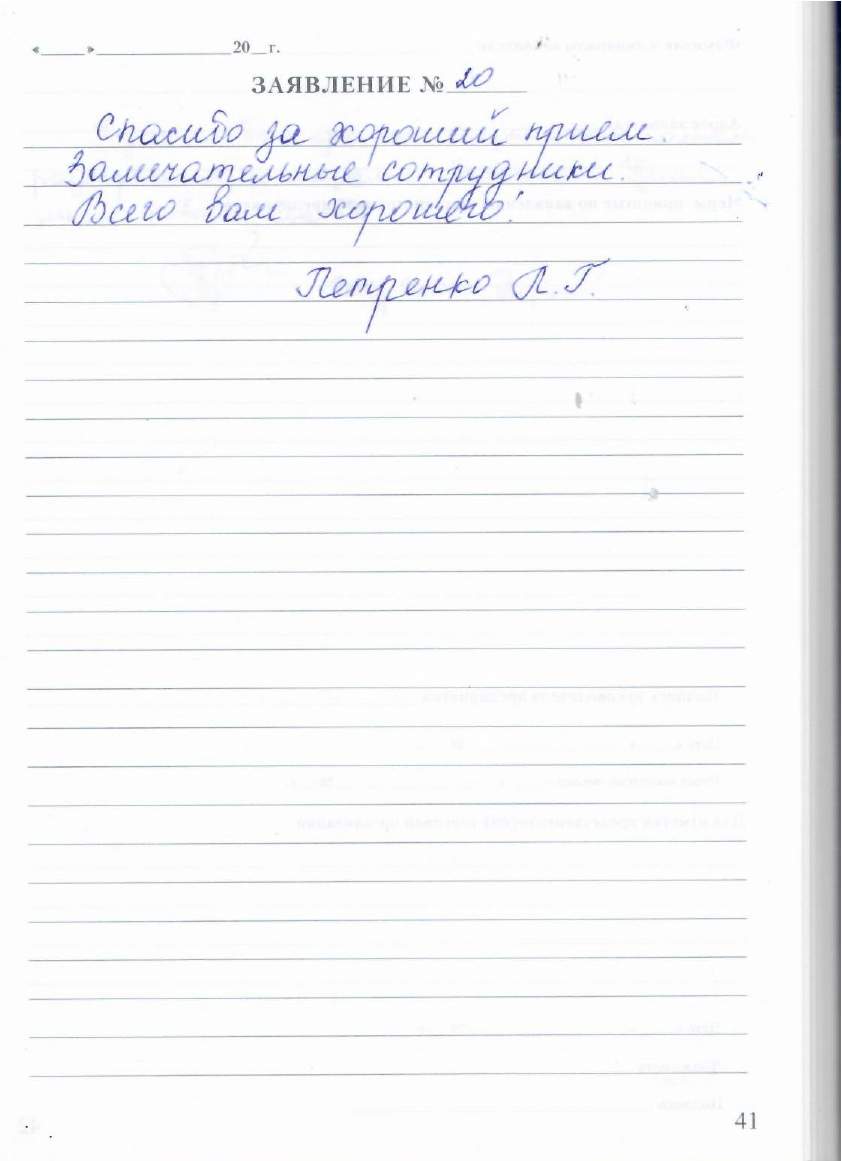 «_____»_______________20__г.
ЗАЯВЛЕНИЕ № 20
Спасибо за хороший прием.
Замечательные сотрудники.
Всего вам хорошего!
Петренко Л.Г.
41